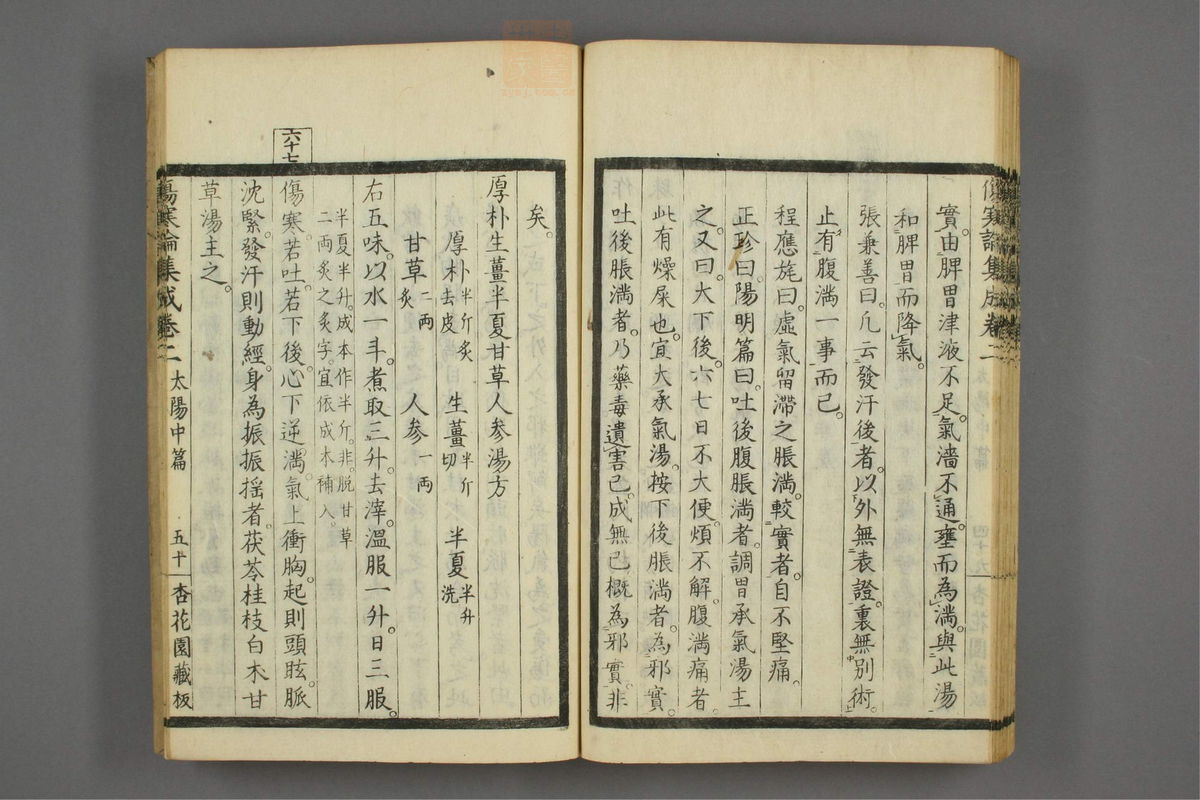 傷寒論集成卷二
實。由脾胃津液不足。氣濇不通。壅而為滿。與此湯
和脾胃而降氣。
張兼善曰。凡云發汗後者。以外無表證。裏無別術。
止有腹滿一事而已。
程應旄曰。虛氣留滯之脹滿。較實者自不堅痛。
正珍曰。陽明篇曰。吐後腹脹滿者。調胃承氣湯主
之。又曰。大下後。六七日不大便。煩不解。腹滿痛者。
此有燥屎也。宜大承氣湯。按下後脹滿者。為邪實。
吐後脹滿者。乃藥毒遺害已。成無已概為邪實。非
矣。
厚朴生薑半夏甘草人參湯方
厚朴半斤炙去皮 生薑半斤切 半夏半升洗
甘草二兩炙 人參一兩
右五味。以水一斗。煮取三升。去滓。溫服一升。日三服。
半夏半升。成本作半斤。非。脫甘草
二兩炙之炙字。宜依成本補入。
六十七
傷寒。若吐。若下後。心下逆滿。氣上衝胸。起則頭眩。脈
沈緊。發汗則動經。身為振振搖者。茯苓桂枝白朮甘
草湯主之。
傷寒論集成卷二 太陽中篇 五十 杏花園藏板